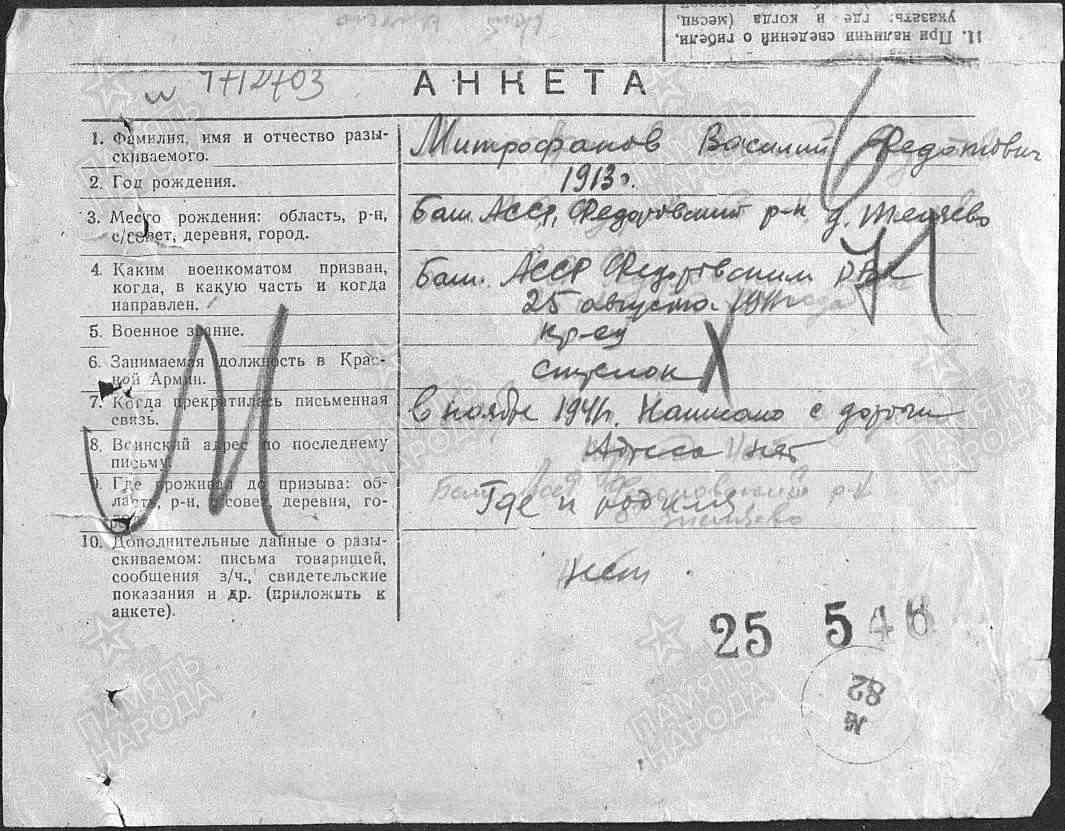 11. При наличии сведений о гибели,
указать: где и когда (месяц,
1712703
АНКЕТА
1. Фамилия, имя и отчество разы-
скиваемого.
Митрофанов Василий Федотович
2. Год рождения.
1913г.
3. Место рождения: область, р-н,
с/совет, деревня, город.
Баш. АССР, Федоровский р-н д.
4. Каким военкоматом призван,
когда, в какую часть и когда
направлен.
Баш. АССР Федоровским РВК
25 августа 1941 года
5. Военное звание.
кр-ец
6. Занимаемая должность в Крас-
ной Армии.
стрелок
7. Когда прекратилась письменная
связь.
в ноябре 1941г. Написано с дороги
8. Воинский адрес по последнему
письму.
Адреса нет
9. Где проживал до призыва: об-
ласть, р-н, с/совет, деревня, го-
род.
Где и родился
10. Дополнительные данные о разы-
скиваемом: письма товарищей,
сообщения з/ч., свидетельские
показания и др. (приложить к
анкете).
нет.
25 546
№
82
ПАМЯТЬ
НАРОДА